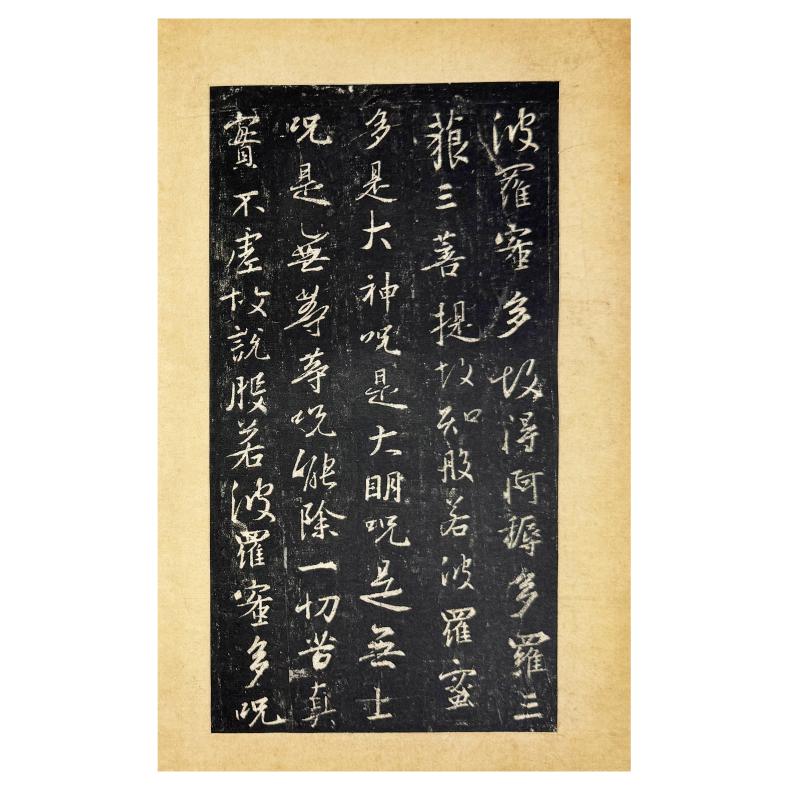 波羅蜜多故得阿耨多羅三
藐三菩提故知般若波羅蜜
多是大神呪是大明呪是無上
呪是無等等呪能除一切苦真
實不虛故說般若波羅蜜多呪